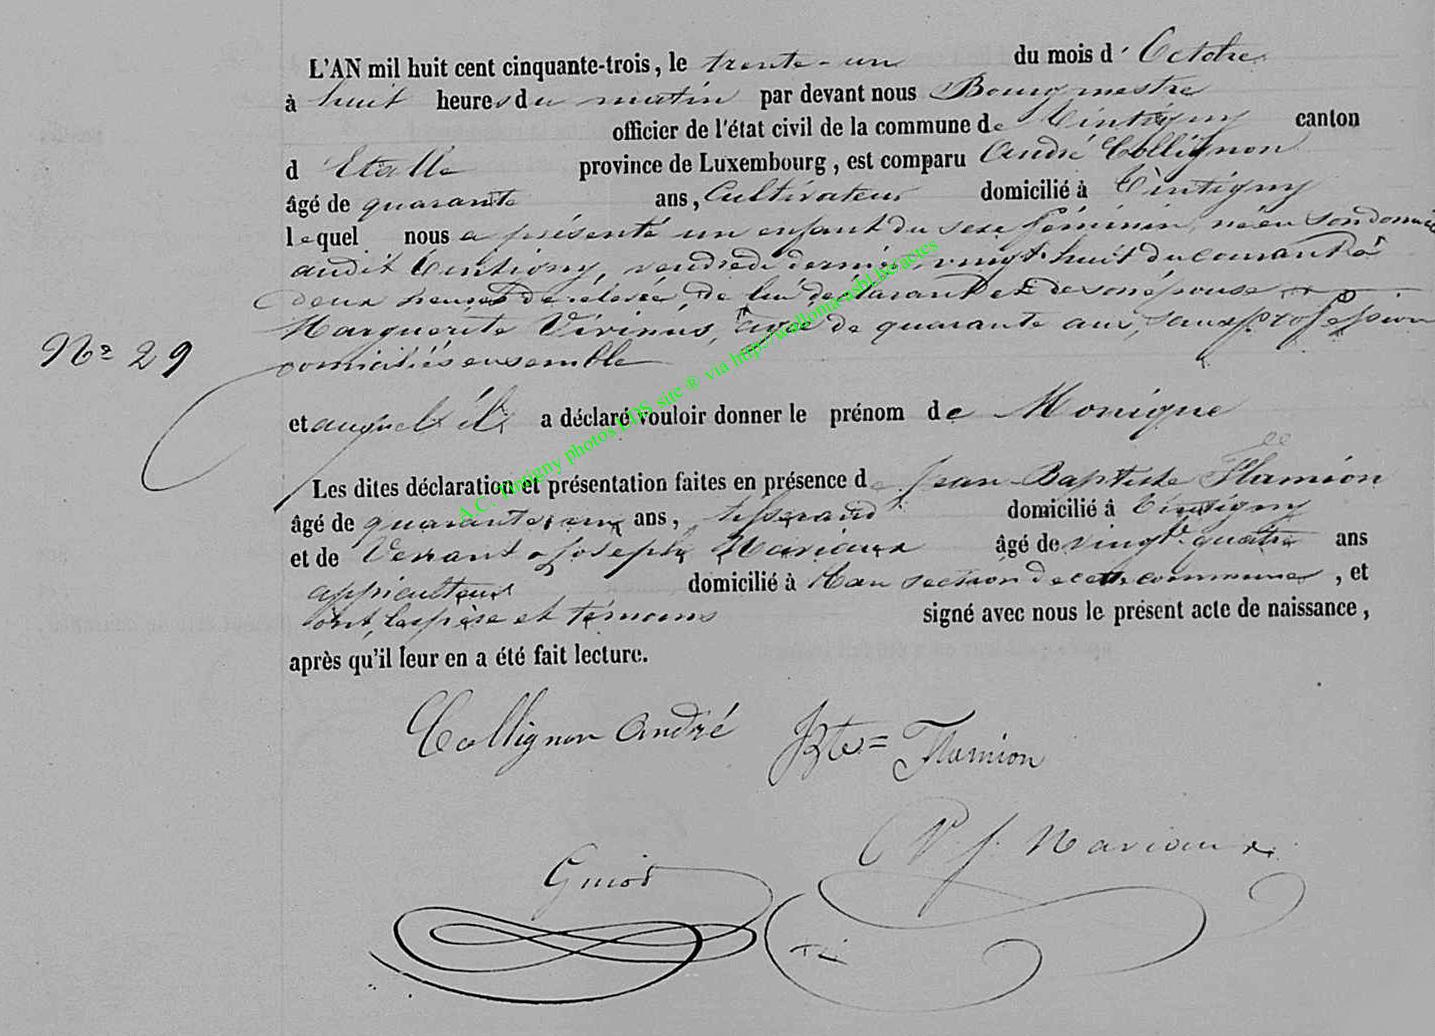 L'AN mil huit cent cinquante-trois, le trente-un du mois d' Octobre
à huit heures du matin par devant nous Bourgmestre
officier de l'état civil de la commune de Tintigny canton
d Etalle province de Luxembourg, est comparu André Collignon
âgé de quarante ans, Cultivateur domicilié à Tintigny
lequel nous a présenté un enfant du sexe féminin, née en son domicile
audit Tintigny, vendredi dernier, vingt-huit du courant à
deux heures de relevée de lui déclarant et de son épouse
Marguerite agée de quarante ans, sans profession
domiciliés ensemble
Nº 29
et auquel il a déclaré vouloir donner le prénom de Monique
Les dites déclaration et présentation faites en présence de Jean Baptiste Flamion
âgé de quarante-un ans, tisserand domicilié à Tintigny
et de Venant Joseph Mariaux âgé de vingt-quatre ans
domicilié à Han section de cette commune, et
ont, les père et témoins signé avec nous le présent acte de naissance,
après qu'il leur en a été fait lecture.
Collignon André JBte= Flamion
V. J. Mariaux
Guiot
A.C. Tintigny photos LDS site ® via http://wallonia-asbl.be/actes